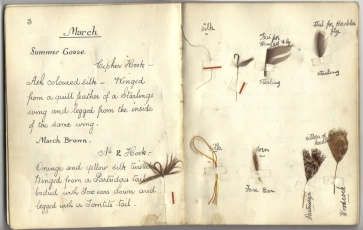 3
March
Summer Goose.
Cypher Hook -
Ash coloured silk - Winged
from a quill feather of a Starlings
wing and legged from the inside
of the same wing.
March Brown.
No 2 Hook -
Orange and yellow silk twisted
Winged from a Partridge tail
bodied with Fox ears down and
legged with a Tomtits tail.
Silk
Starling
Starling
Silk
Fox Ear
Partridge